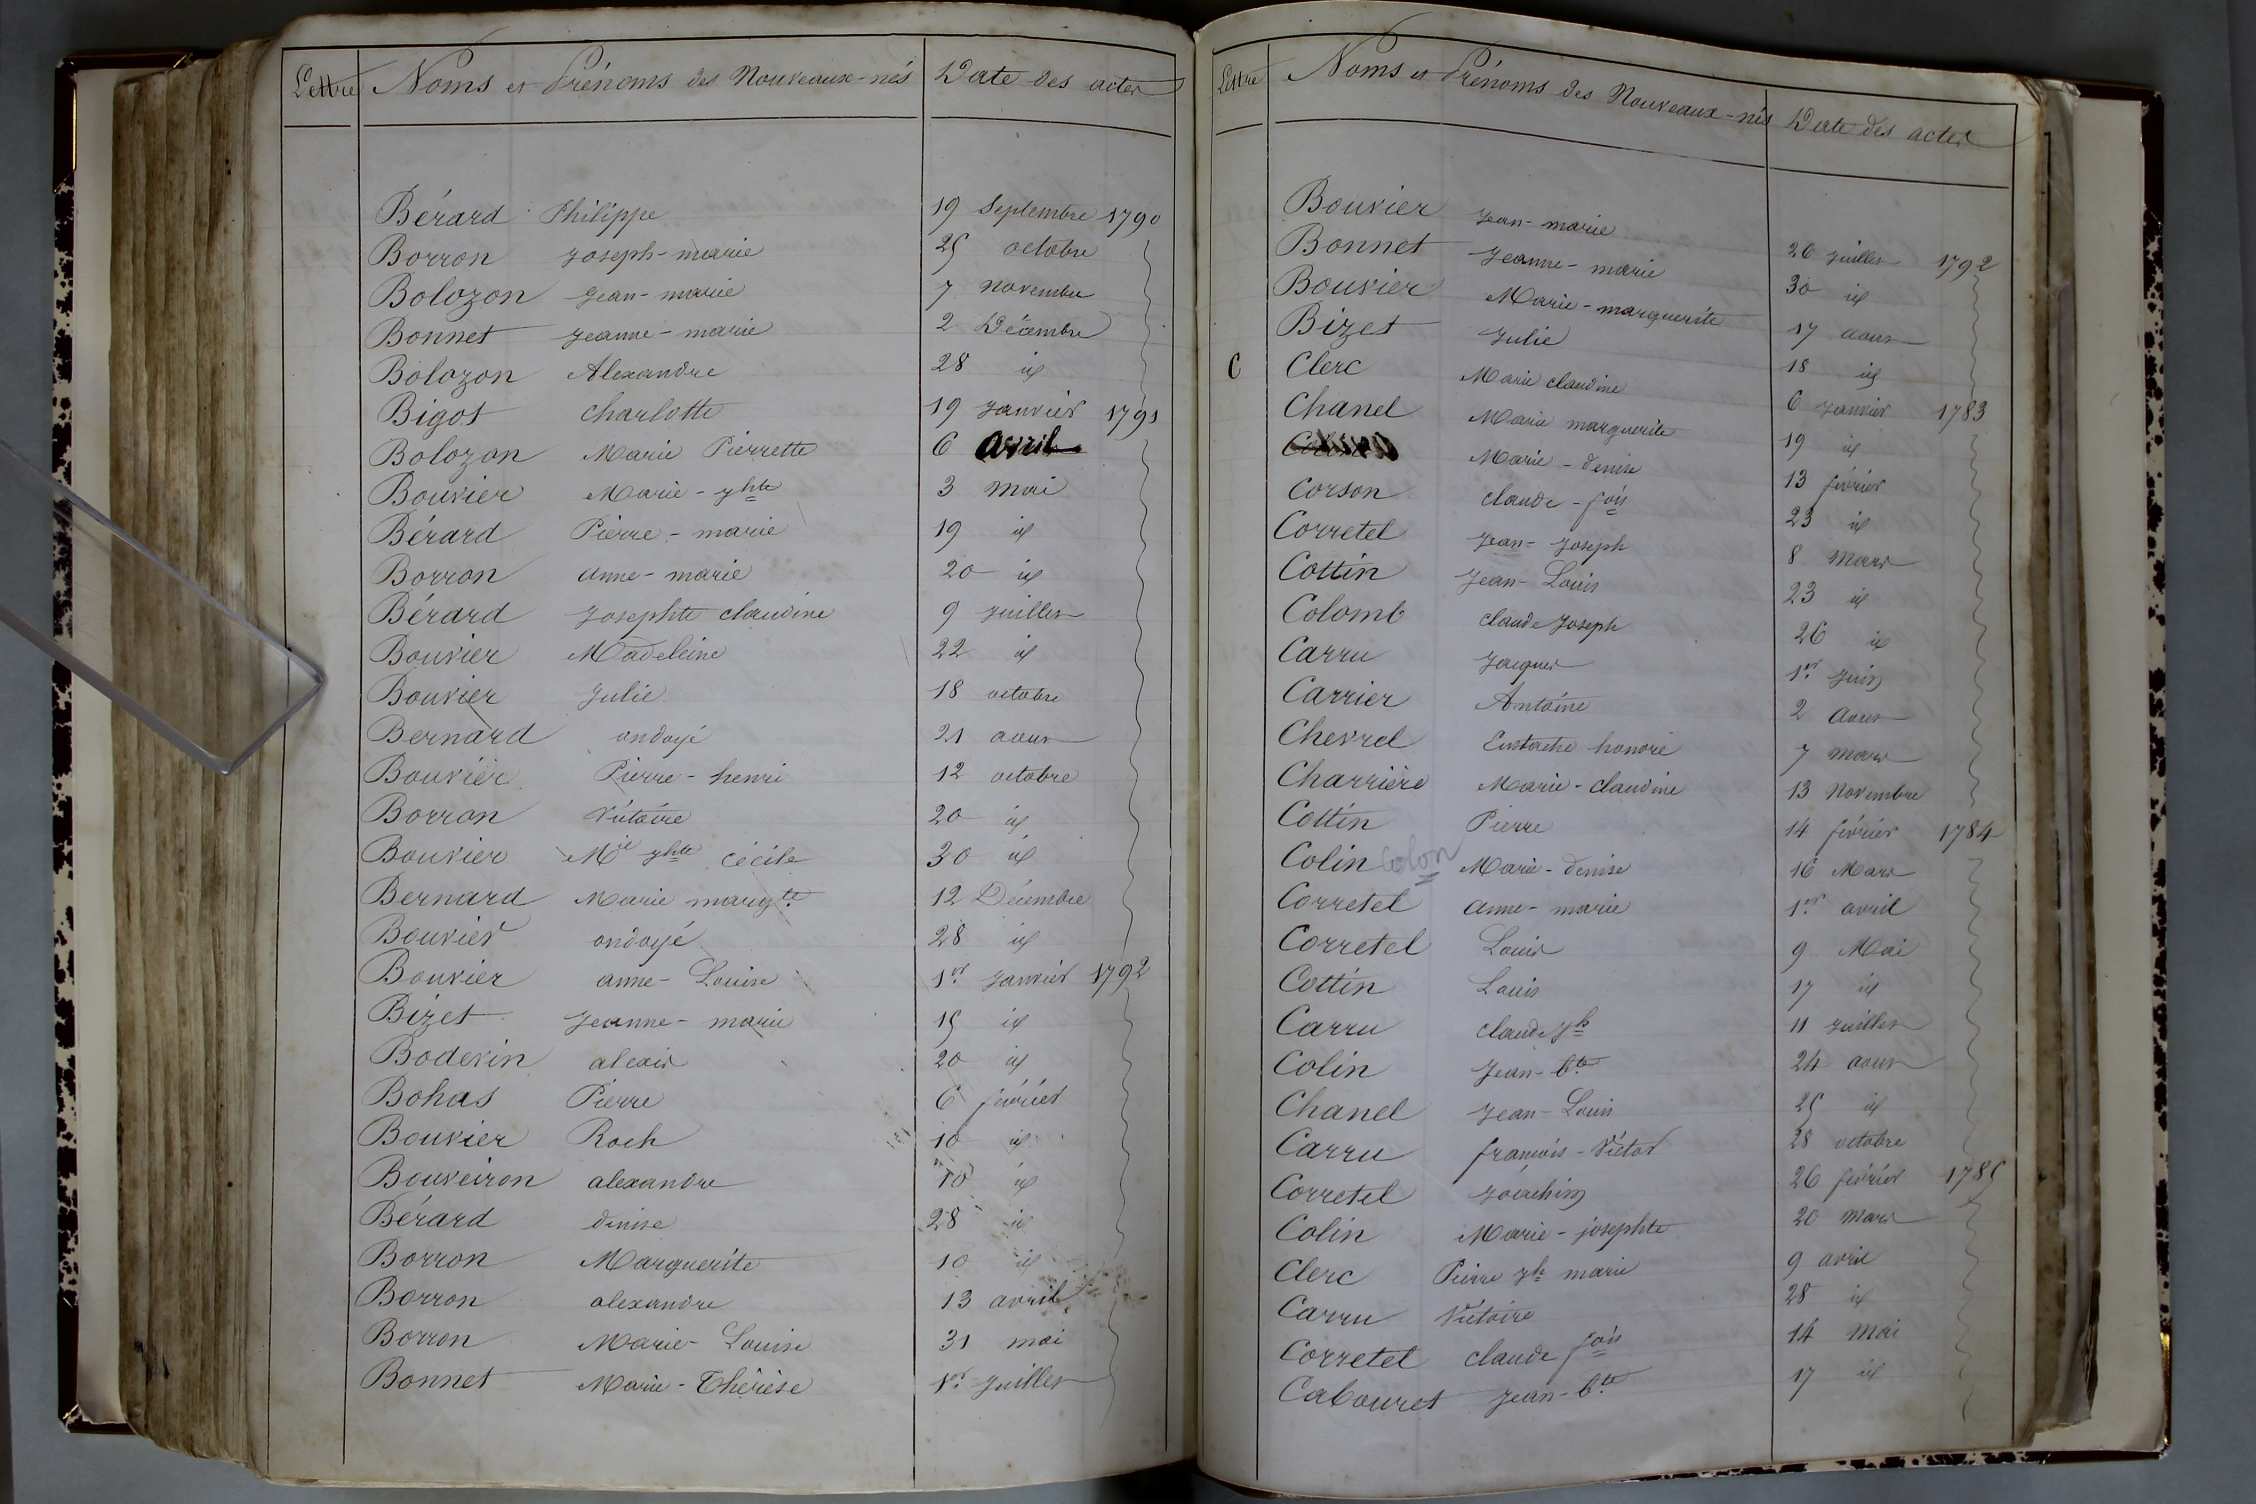 Lettre Noms et Prénoms des Nouveaux-nés Date des actes
Bérard Philippe 19 Septembre 1790
Borron Joseph-marie 25 octobre
Bolozon Jean-marie 7 novembre
Bonnet Jeanne-marie 2 Décembre
Bolozon Alexandre 28 id
Bigot Charlotte 19 Janvier 1791
Bolozon Marie Pierrette 6 avril
Bouvier Marie-jhte 3 mai
Bérard Pierre-marie 19 id
Borron anne-marie 20 id
Bérard Josephte claudine 9 Juillet
Bouvier Madeleine 22 id
Bouvier Julie 18 octobre
Bernard ondoyé 21 aout
Bouvier Pierre-henri 12 octobre
Borron Victoire 20 id
Bouvier Mie jhte cécile 30 id
Bernard Marie margte 12 Décembre
Bouvier ondoyé 28 id
Bouvier anne-Louise 1er Janvier 1792
Bizet Jeanne-marie 15 id
Boderin alexis 20 id
Bohas Pierre 6 février
Bouvier Roch 10 id
Bouveiron alexandre 10 id
Bérard denise 28 id
Borron Marguerite 10 id
Borron alexandre 13 avril
Borron Marie-Louise 31 mai
Bonnet Marie-Thérèse 1er Juillet
Lettre Noms et Prénoms des Nouveaux-nés Date des actes
Bouvier Jean-marie 26 Juillet 1792
Bonnet Jeanne-marie 30 id
Bouvier Marie-marguerite 17 aout
Bizet Julie 18 id
C Clerc Marie claudine 6 Janvier 1783
Chanel Marie marguerite 19 id
Marie-denise 13 février
Corson claude-fois 23 id
Corretel Jean-Joseph 8 Mars
Cottin Jean-Louis 23 id
Colomb claude Joseph 26 id
Carru Jacques 1er Juin
Carrier Antoine 2 Aout
Chevrel Eustache honoré 7 mars
Charrière Marie-claudine 13 Novembre
Cottin Pierre 14 février 1784
Colin Colon Marie-denise 16 Mars
Corretel anne-marie 1er avril
Corretel Louis 9 Mai
Cottin Louis 17 id
Carru claude jh 11 Juillet
Colin Jean-bte 24 aout
Chanel Jean-Louis 25 id
Carru françois-Victor 28 octobre
Corretel Joachim 26 février 1785
Colin Marie-josephte 20 Mars
Clerc Pierre jh marie 9 avril
Carru Victoire 28 id
Corretel claude fois 14 Mai
Cabouret Jean-bte 17 id